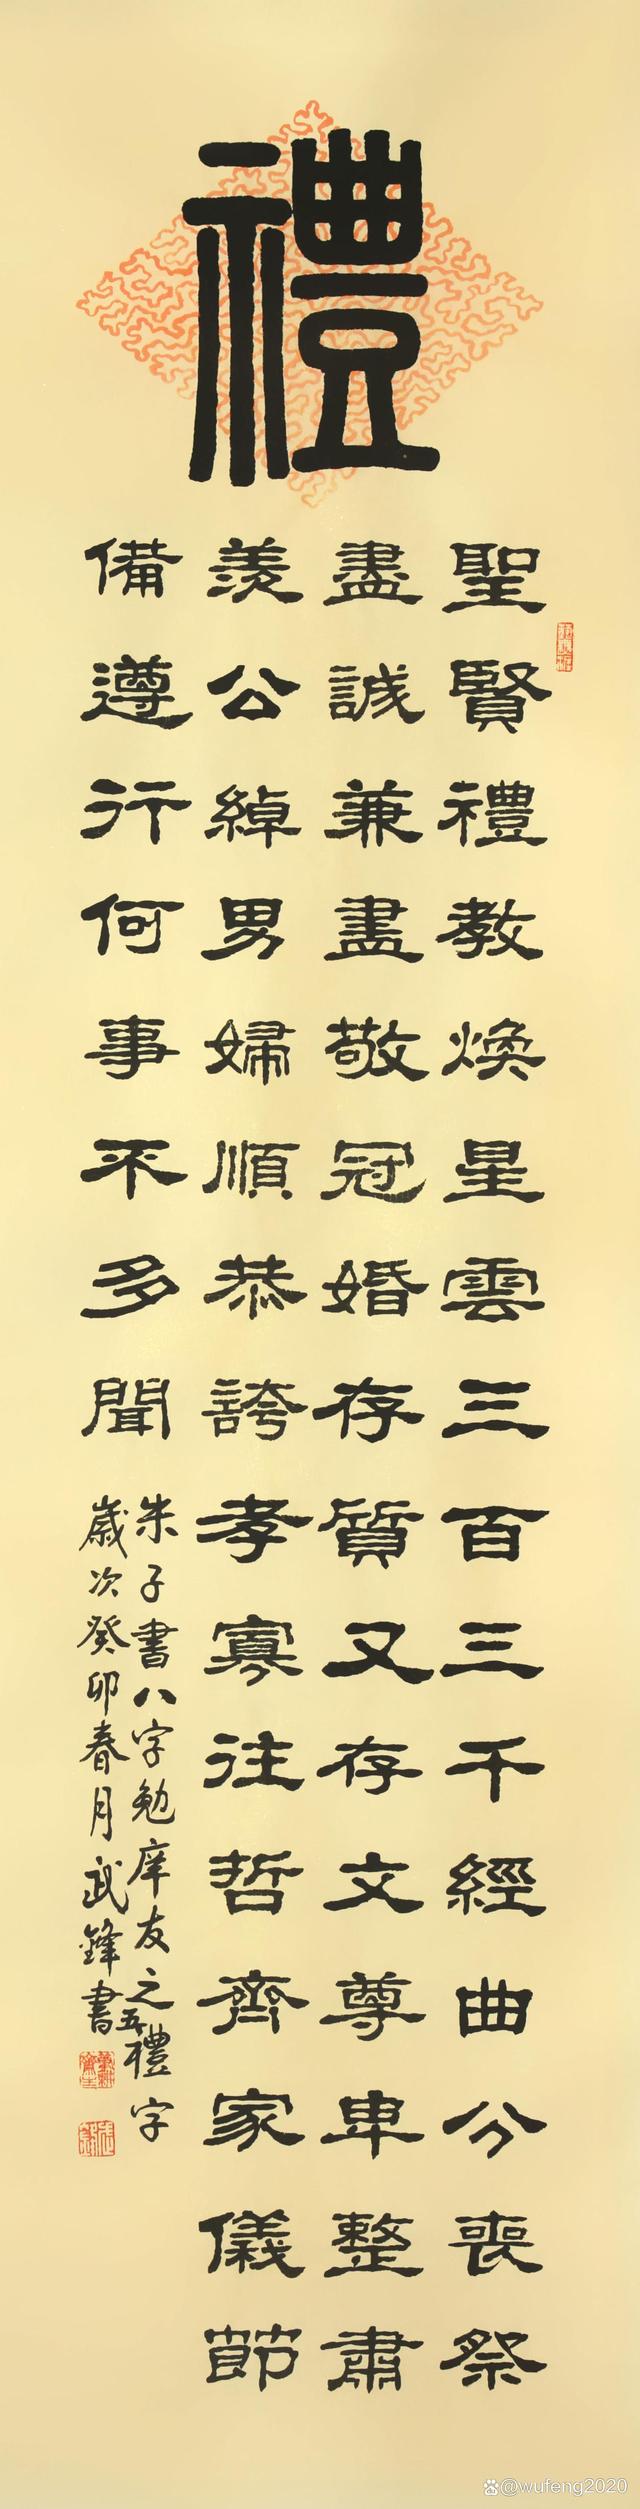 禮
聖賢禮教煥星雲三百三千經曲分喪祭
盡誠兼盡敬冠婚存質又存文尊卑整肅
羨公綽男婦順恭誇孝寡往哲齊家儀節
備遵行何事不多聞
朱子書八字勉庠友之五禮字
歲次癸卯春月武鋒書
@wufeng2020